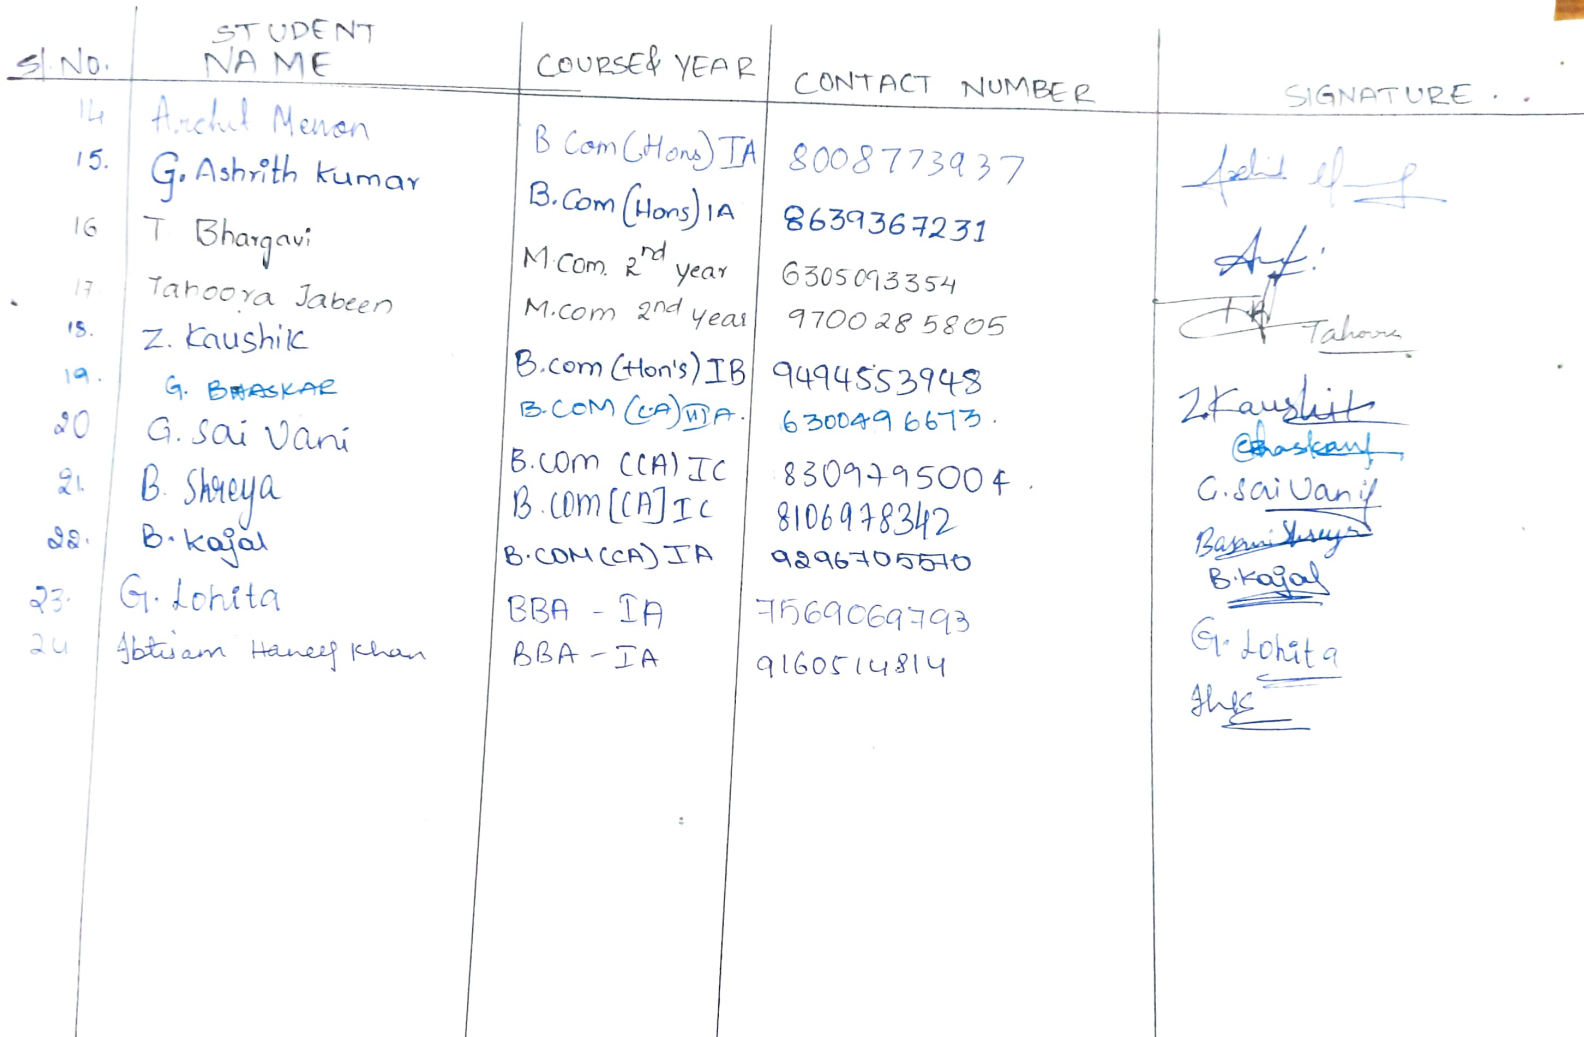 STUDENT
Sl. No. NAME COURSE & YEAR CONTACT NUMBER SIGNATURE . .
14 Archil Menon B Com (Hons) IA 8008773937
15. G. Ashrith Kumar B.Com (Hons) IA 8639367231
16 T Bhargavi M.Com. 2nd year 6305093354
17. Tahoora Jabeen M.com 2nd year 9700285805 Tahoora
18. Z. Kaushik B.com (Hon's) IB 9494553948 Z.Kaushik
19. G. BHASKAR B.COM (CA) III A. 6300496673. Bhaskar
20 G. Sai Vani B.com (CA) IC 8309795004. G.Sai Vani
21. B. Shreya B.COM [CA] IC 8106978342 Shreya
22. B. Kajal B.COM (CA) IA 9296705570 B.Kajal
23. G. Lohita BBA - IA 7569069793 G. Lohita
24 Ibtisam Haneef Khan BBA - IA 9160514814